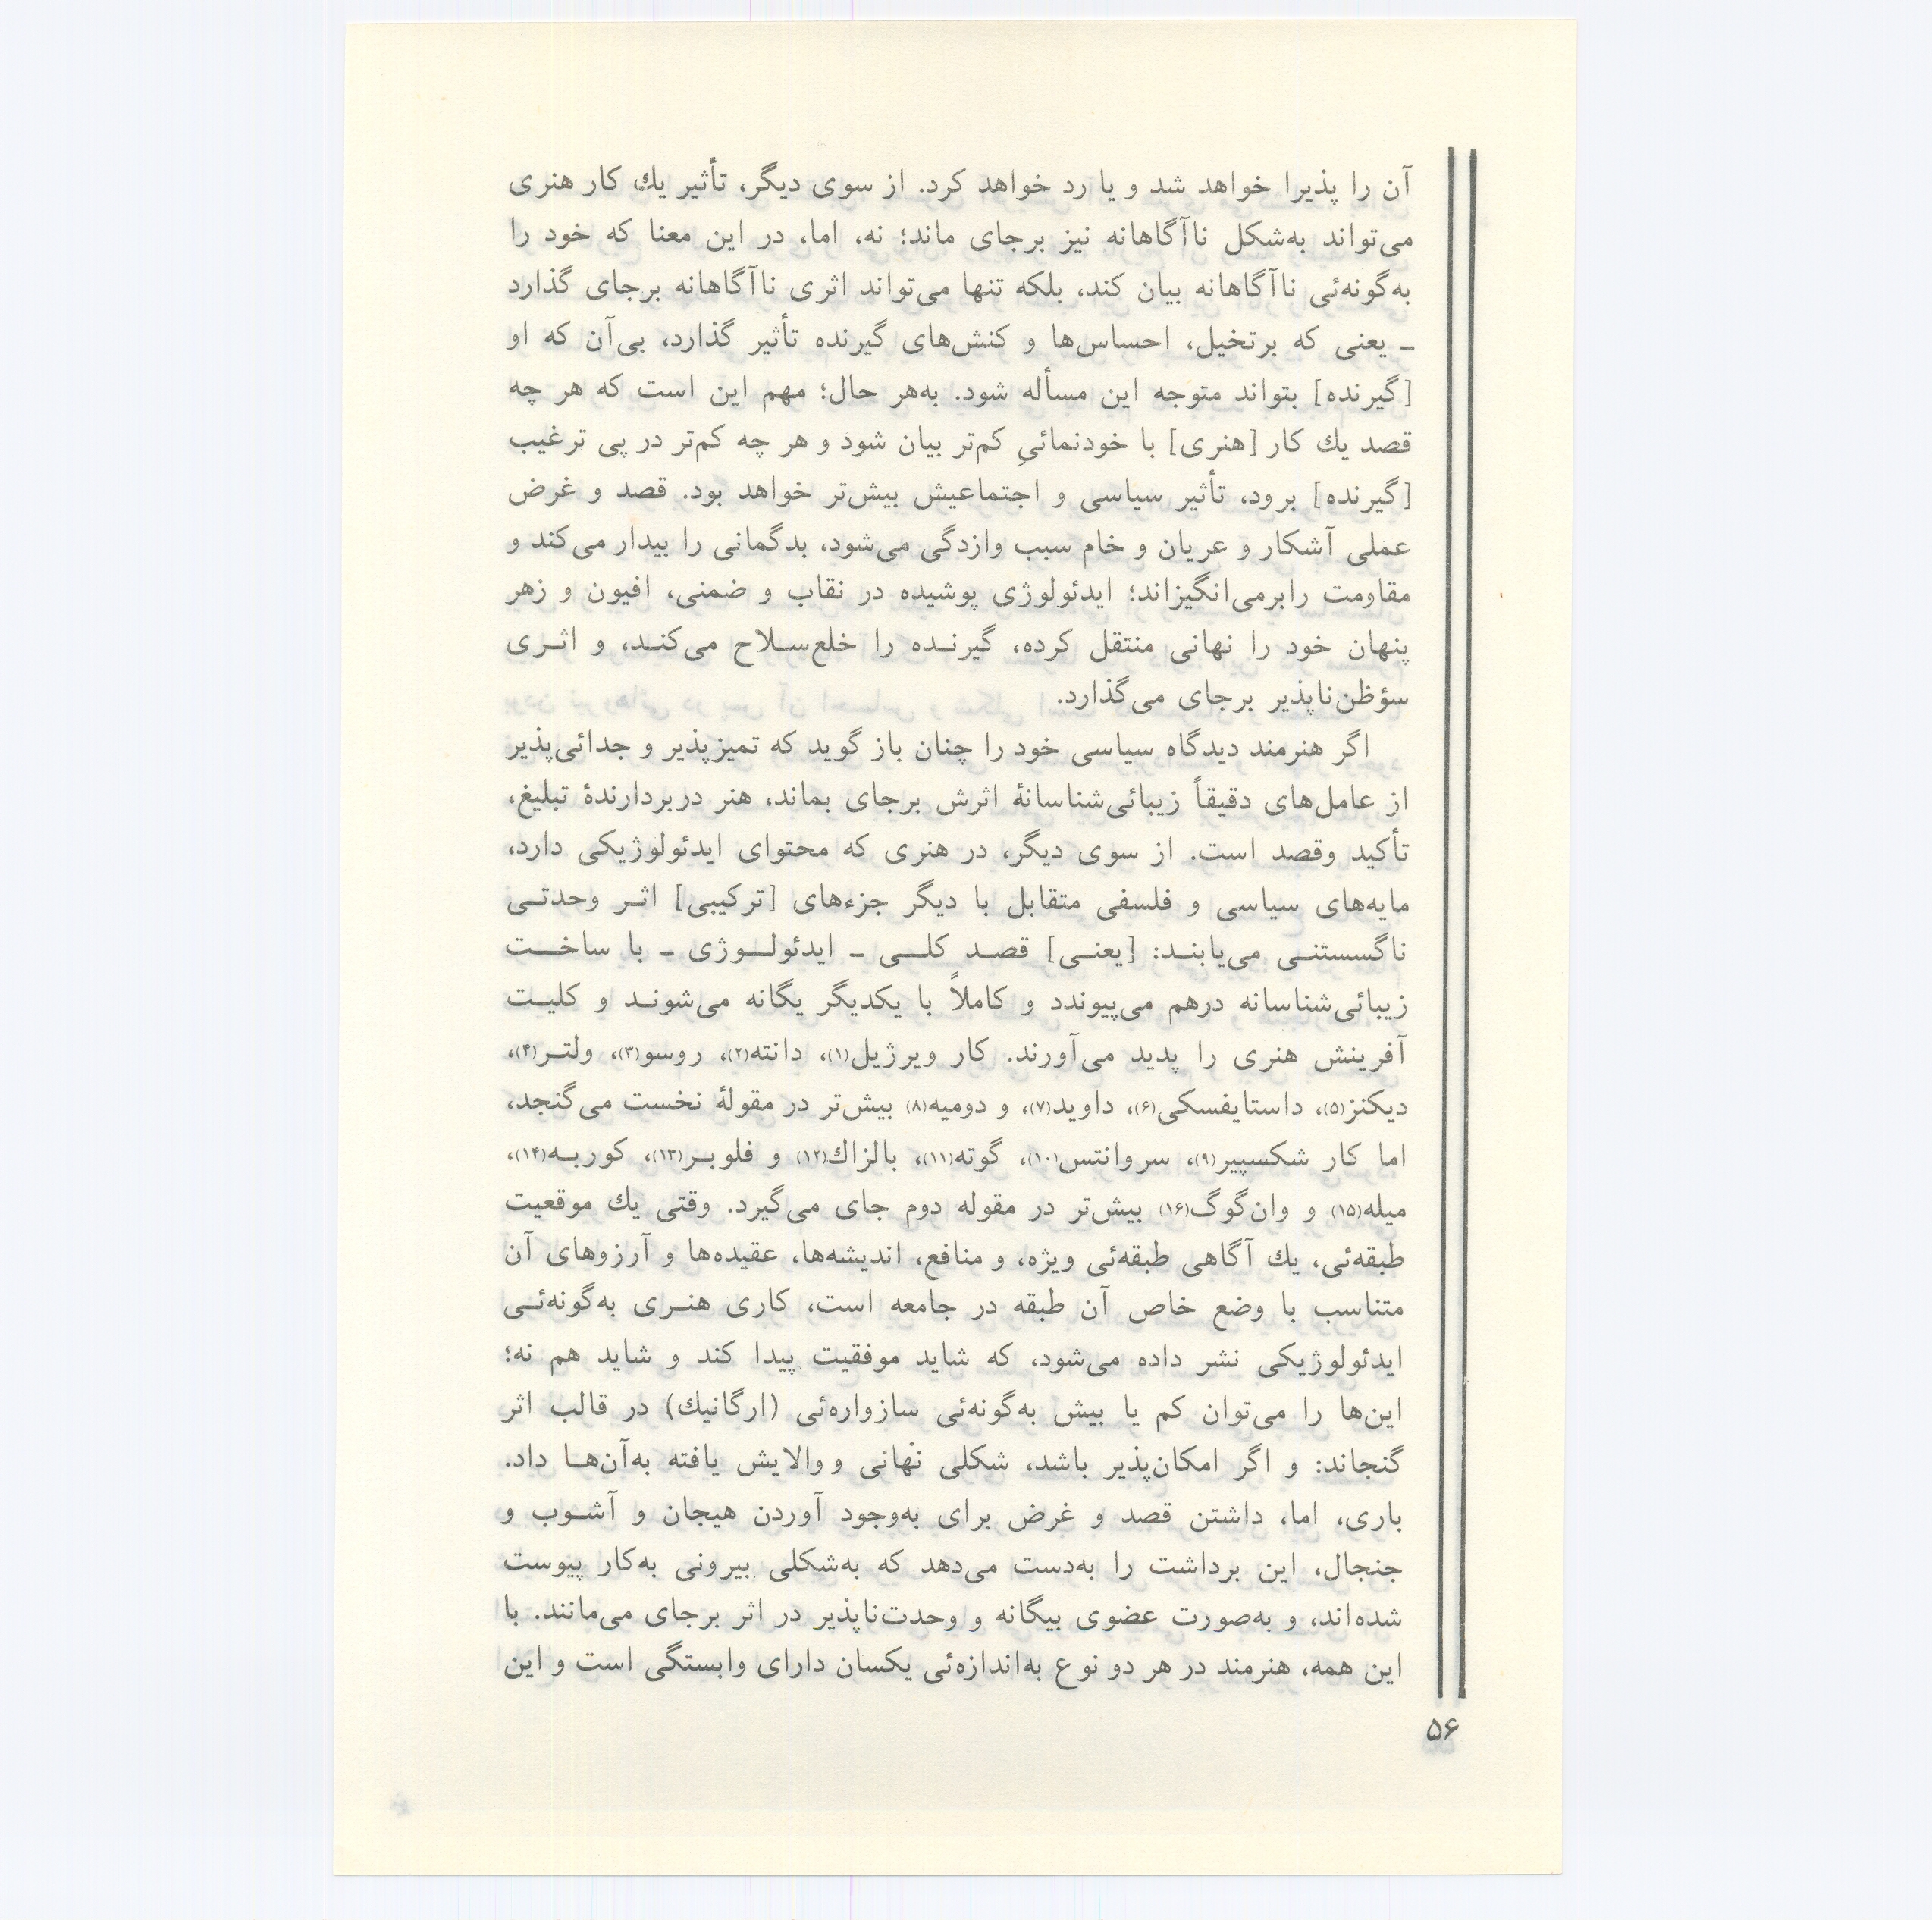 آن را پذیرا خواهد شد و یا رد خواهد کرد. از سوی دیگر، تأثیر یك کار هنری
می‌تواند به‌شکل ناآگاهانه نیز برجای ماند؛ نه، اما، در این معنا که خود را
به‌گونه‌ئی ناآگاهانه بیان کند، بلکه تنها می‌تواند اثری ناآگاهانه برجای گذارد
ـ یعنی که برتخیل، احساس‌ها و کنش‌های گیرنده تأثیر گذارد، بی‌آن که او
[گیرنده] بتواند متوجه این مسأله شود. به‌هر حال؛ مهم این است که هر چه
قصد یك کار [هنری] با خودنمائیِ کم‌تر بیان شود و هر چه کم‌تر در پی ترغیب
[گیرنده] برود، تأثیر سیاسی و اجتماعیش بیش‌تر خواهد بود. قصد و غرض
عملی آشکار و عریان و خام سبب وازدگی می‌شود، بدگمانی را بیدار می‌کند و
مقاومت رابرمی‌انگیزاند؛ ایدئولوژی پوشیده در نقاب و ضمنی، افیون و زهر
پنهان خود را نهانی منتقل کرده، گیرنـده را خلع‌سـلاح می‌کنـد، و اثـری
سؤظن‌ناپذیر برجای می‌گذارد.
اگر هنرمند دیدگاه سیاسی خود را چنان باز گوید که تمیزپذیر و جدائی‌پذیر
از عامل‌های دقیقاً زیبائی‌شناسانهٔ اثرش برجای بماند، هنر دربردارندهٔ تبلیغ،
تأکید وقصد است. از سوی دیگر، در هنری که محتوای ایدئولوژیکی دارد،
مایه‌های سیاسی و فلسفی متقابل با دیگر جزءهای [ترکیبی] اثـر وحدتـی
ناگسستنـی می‌یابنـد: [یعنـی] قصـد کلـی ـ ایدئولـوژی ـ با ساخـت
زیبائی‌شناسانه درهم می‌پیوندد و کاملاً با یکدیگر یگانه می‌شونـد و کلیـت
آفرینش هنری را پدید می‌آورند. کار ویرژیل(۱)، دانته(۲)، روسو(۳)، ولتـر(۴)،
دیکنز(۵)، داستایفسکی(۶)، داوید(۷)، و دومیه(۸) بیش‌تر در مقولهٔ نخست می‌گنجد،
اما کار شکسپیر(۹)، سروانتس(۱۰)، گوته(۱۱)، بالزاك(۱۲) و فلوبـر(۱۳)، کوربـه(۱۴)،
میله(۱۵) و وان‌گوگ(۱۶) بیش‌تر در مقوله دوم جای می‌گیرد. وقتی یك موقعیت
طبقه‌ئی، یك آگاهی طبقه‌ئی ویژه، و منافع، اندیشه‌ها، عقیده‌ها و آرزوهای آن
متناسب با وضع خاص آن طبقه در جامعه است، کاری هنـری به‌گونه‌ئـی
ایدئولوژیکی نشر داده می‌شود، که شاید موفقیت پیدا کند و شاید هم نه؛
این‌ها را می‌توان کم یا بیش به‌گونه‌ئی سازواره‌ئی (ارگانیك) در قالب اثر
گنجاند: و اگر امکان‌پذیر باشد، شکلی نهانی و والایش یافته به‌آن‌هـا داد.
باری، اما، داشتن قصد و غرض برای به‌وجود آوردن هیجان و آشـوب و
جنجال، این برداشت را به‌دست می‌دهد که به‌شکلی بیرونی به‌کار پیوست
شده‌اند، و به‌صورت عضوی بیگانه و وحدت‌ناپذیر در اثر برجای می‌مانند. با
این همه، هنرمند در هر دو نوع به‌اندازه‌ئی یکسان دارای وابستگی است و این
۵۶